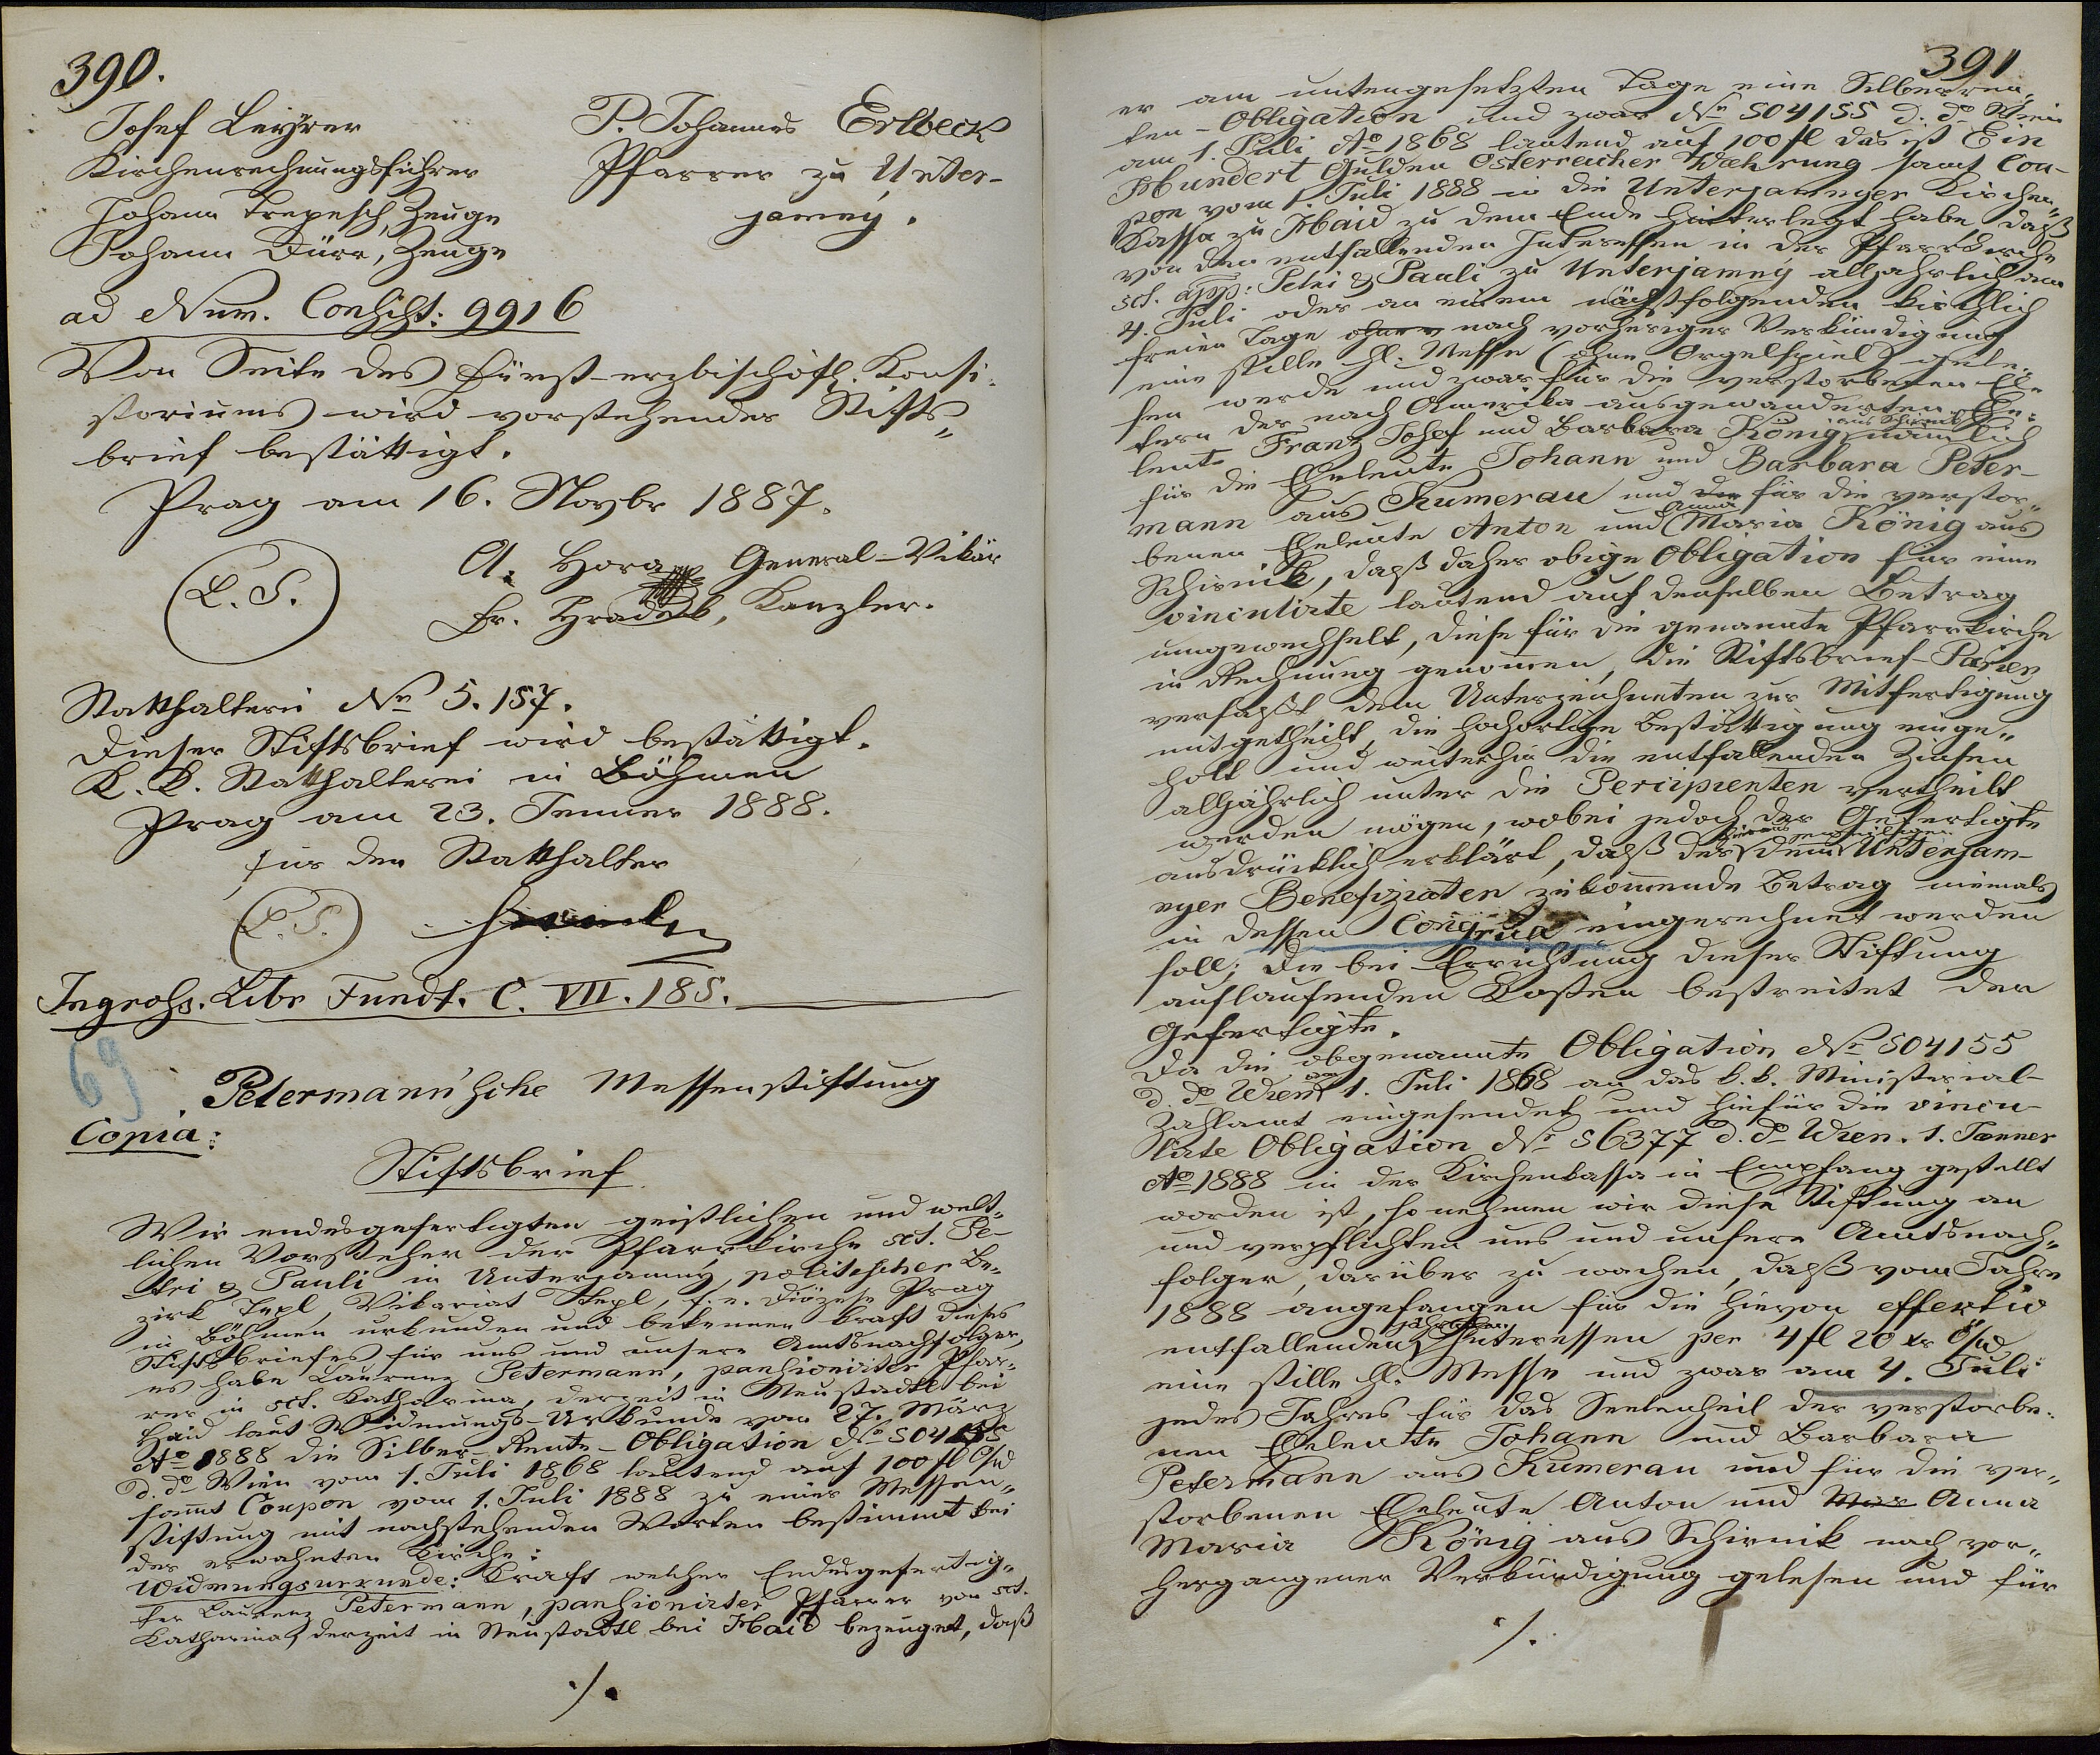 390.
Josef Leyrer
Kirchenrechnungsführer
Johann Trepesch, Zeuge
Johann Dürr, Zeuge
P. Johannes Erlbeck
Pfarrer zu Unter-
jamny.
ad Num. Consist: 9916
Von Seite des Fürst-erzbischöfl. Konsi-
storiums wird vorstehender Stifts-
brief bestättigt.
Prag am 16. Novbr 1887.
(L.S.)
A. Hora General-Vikär
Fr. Hradek, Kanzler.
Statthalterei No 5.157.
Dieser Stiftsbrief wird bestättigt.
K. K. Statthalterei in Böhmen
Prag am 23. Jenner 1888.
für den Statthalter
(L.S.)
Ingross. Libr Fundt. C. VII. 185.
69
Petermann'sche Messenstiftung
Copia:
Stiftsbrief
Wir endesgefertigten geistlichen und welt-
lichen Vorsteher der Pfarrkirche sct. Pe-
tri & Pauli in Unterjamny, politischer Be-
zirk Tepl, Vikariat Tepl, f. e. Diözese Prag
in Böhmen urkunden und bekennen kraft dieses
Stiftsbriefes für uns und unsere Amtsnachfolger,
es habe Laurenz Petermann, pansionirter Pfar-
rer in sct. Katharina, derzeit in Neustadtl bei
Haid laut Widmungs-Urkunde vom 27. März
Ao 1888 die Silber-Rente-Obligation No 504155
d. do Wien vom 1. Juli 1868 lautend auf 100 fl ÖW
sammt Coupon vom 1. Juli 1888 zu einer Messen-
stiftung mit nachstehenden Worten bestimmt bei
der erwahnten Kirche:
Widmungsurkunde: Kraft welcher Endesgefertig-
ter Laurenz Petermann, pansionirter Pfarrer von sct.
Katharina, derzeit in Neustadtl bei Haid bezeuget, daß
./.
391
er am untengesetzten Tage eine Silberren-
ten-Obligation und zwar No 504155 d. do Wien
am 1. Juli Ao 1868 lautend auf 100 fl das ist Ein
Hundert Gulden Österreicher Wæhrung samt Cou-
pon vom 1. Juli 1888 in die Unterjamnyer Kirchen-
Kassa zu Haid zu dem Ende hinterlegt habe, daß
von den entfallenden Interessen in der Pfarrkirche
sct. app: Petri & Pauli zu Unterjamny alljahrlich am
4. Juli oder an einem nächstfolgenden kirchlich
freien Tage nach vorheriger Verkündigung
eine stille hl. Messe (ohne Orgelspiel) gele-
sen werde und zwar für die verstorbenen El-
tern der nach Amerika ausgewanderten Ehe-
leute Franz Josef und Barbara König aus Schirnik nämlich
für die Eheleute Johann und Barbara Peter-
mann aus Kumerau und der für die verstor-
benen Eheleute Anton und Anna Maria König aus
Schirnik, daß daher obige Obligation für eine
vinculirte lautend auf denselben Betrag
umgewechselt, diese für die genannte Pfarrkirche
in Rechnung genommen, die Stiftsbrief-Parien
verfaßt dem Unterzeichneten zur Mitfertigung
mitgetheilt, die hochortige Bestättigung einge-
holt und weiterhin die entfallenden Zinsen
alljährlich unter die Percipienten vertheilt
werden mögen, wobei jedoch der Gefertigte
ausdrücklich erklärt, daß der hieraus dem jeweiligen Unterjam-
nyer Benefiziaten zukommende Betrag niemals
in dessen Congrua eingerechnet werden
soll; die bei Errichtung dieser Stiftung
auflaufenden Kosten bestreitet der
Gefertigte.
Da die obgenannte Obligation No 504155
d. do Wien am 1. Juli 1868 an das k. k. Ministerial-
Zahlamt eingesendet und hiefür die vincu-
lirte Obligation No 56377 d. do Wien. 1. Jænner
Ao 1888 in der Kirchenkassa in Empfang gestellt
worden ist, so nehmen wir diese Stiftung an
und verpflichten uns und unsere Amtsnach-
folger, darüber zu wachen, daß vom Jahre
1888 angefangen für die hievon effektiv
entfallenden jährlichen Interessen per 4 fl 20 kr ÖW
eine stille hl. Messe und zwar am 4. Juli
jedes Jahres für das Seelenheil der verstorbe-
nen Eheleute Johann und Barbara
Petermann aus Kumerau und für die ver-
storbenen Eheleute Anton und Mar Anna
Maria König aus Schirnik nach vor-
hergangener Verkündigung gelesen und für
./.